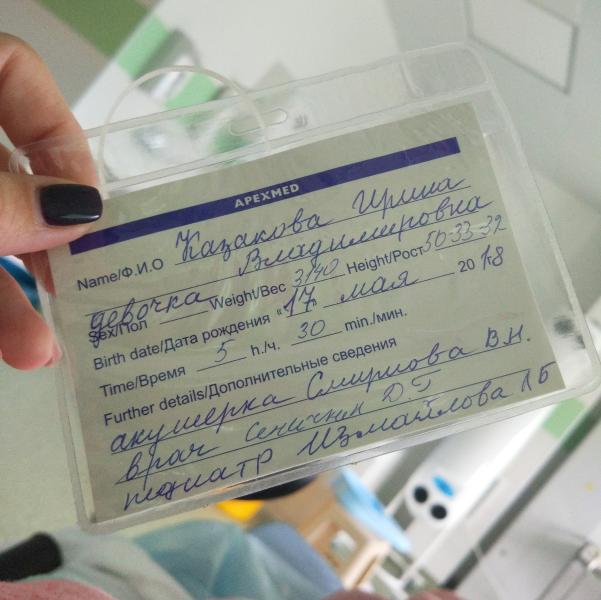 APEXMED
Name/Ф.И.О Казакова Ирина
Владимировна
девочка
Sex/Пол Weight/Вес 3140 Height/Рост 50-33-32
Birth date/Дата рождения "17" мая 2018
Time/Время 5 h./ч. 30 min./мин.
Further details/Дополнительные сведения
акушерка Смирнова В.Н.
врач Д.Т
педиатр Измайлова Л Б